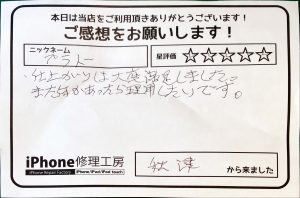 本日は当店をご利用頂きありがとうございます!
ご感想をお願いします!
ニックネーム
星評価 ☆☆☆☆☆
仕上がりは大変満足しました。
また何かあったら利用したいです。
iPhone修理工房
iPhone Repair Factory iPhone/iPad/iPod touch
から来ました